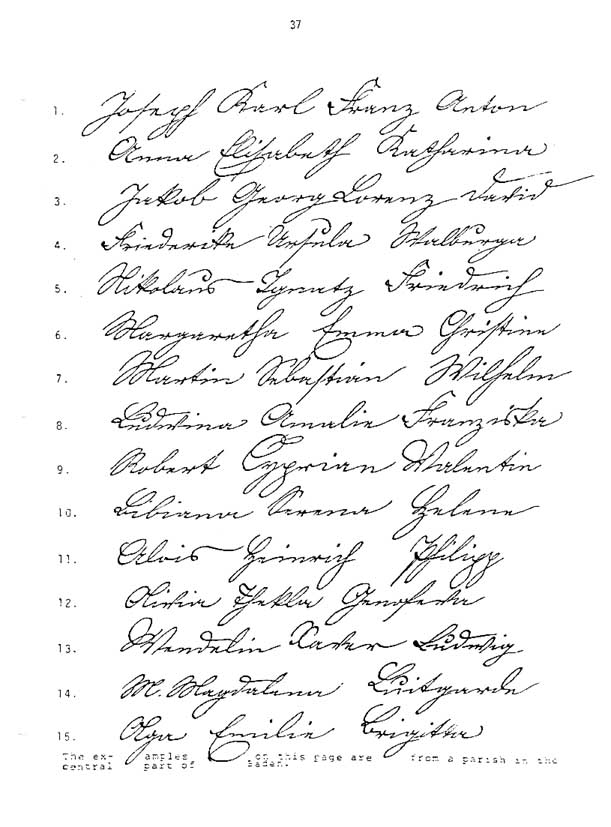 37
1. Joseph Karl Franz Anton
2. Anna Elisabeth Katharina
3. Jakob Georg Lorenz David
4. Friederike Ursula Walburga
5. Nikolaus Ignatz Friedrich
6. Margaretha Emma Christine
7. Martin Sebastian Wilhelm
8. Ludwina Amalie Franziska
9. Robert Cyprian Valentin
10. Bibiana Serena Helene
11. Alois Heinrich Philipp
12. Olivia Thekla Genofeva
13. Wendelin Xaver Ludwig
14. M. Magdalena Luitgarde
15. Olga Emilie Brigitta
The ex- amples on this page are from a parish in the
central part of Baden.